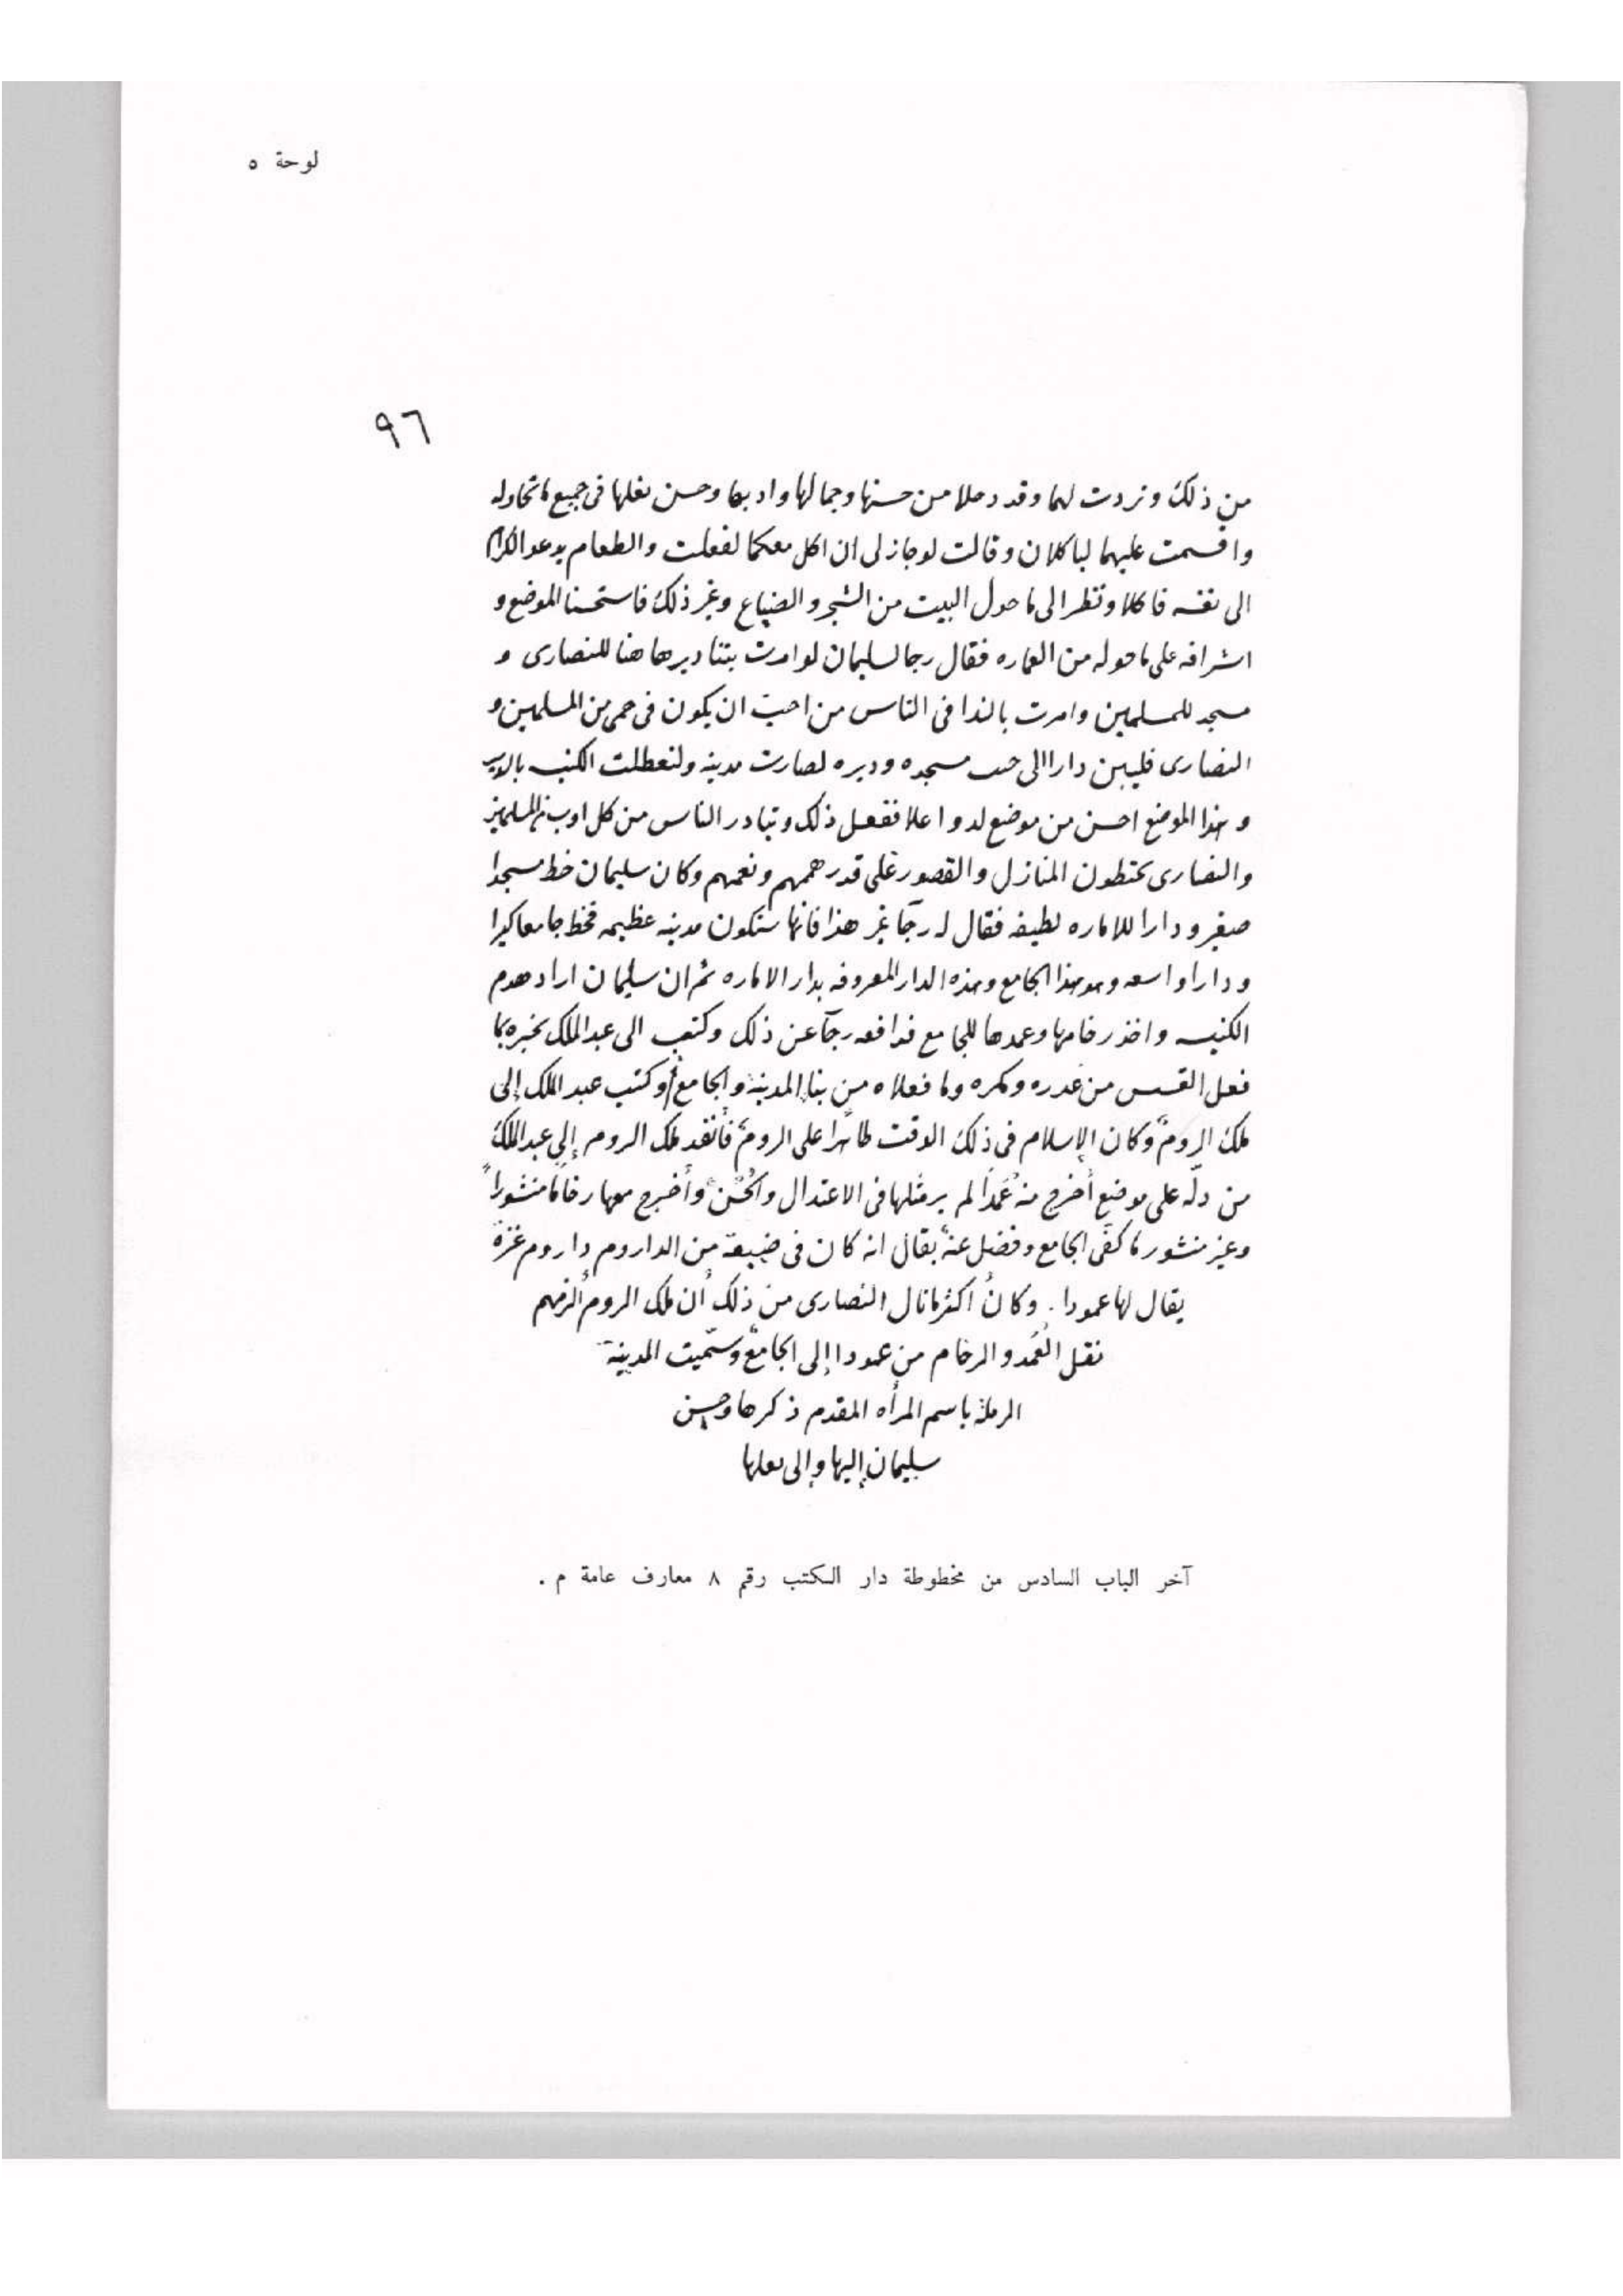 لوحة ٥
٩٦
من ذلك وبردت لهما وقد دهلا من حسنها وجمالها وادبها وحسن نعلها فى جميع ما تحاوله
واقسمت عليهما لياكلان وقالت لو جاز لى ان اكل معكما لفعلت والطعام يدعو الكرام
الى نفسه فاكلا ونظرا الى ما حول البيت من الشجر والضياع وغير ذلك فاستحسنا الموضع و
اشرافه على ما حوله من العماره فقال رجا لسليمان لو امرت ببنا دير هاهنا للنصارى و
مسجد للمسلمين وامرت بالندا فى الناس من احب ان يكون فى حمى من المسلمين و
النصارى فليبن دارا الى جنب مسجده وديره لصارت مدينه ولتعطلت الكنيسه
وهذا الموضع احسن من موضع لد واعلا ففعل ذلك وتبادر الناس من كل اوب من المسلمين
والنصارى يختطون المنازل والقصور على قدر هممهم ونعمهم وكان سليمان خط مسجدا
صغير ودارا للاماره لطيفه فقال له رجآ غير هذا فانها ستكون مدينه عظيمه فخط جامعا كبيرا
ودارا واسعه وهو هذا الجامع وهذه الدار المعروفه بدار الاماره ثم ان سليمان اراد هدم
الكنيسه واخذ رخامها وعمدها للجامع فدافعه رجآ عن ذلك وكتب الى عبد الملك يخبره بما
فعل القسس من غدره ومكره وما فعلاه من بنا المدينة والجامع وكتب عبد الملك إلى
ملك الروم وكان الإسلام فى ذلك الوقت ظاهرا على الروم فأنفد ملك الروم إلى عبد الملك
من دلّه على موضع أخرج منه عُمَداً لم ير مثلها فى الاعتدال والحُسْن وأخرج معها رخاما منشوراً
وغير منشور ما كفى الجامع وفضل عنه يقال انه كان فى ضيعة من الداروم داروم غزة
يقال لها عمودا . وكان أكثر ما نال النصارى من ذلك أن ملك الروم ألزمهم
نقل العُمَد والرخام من عمودا إلى الجامع وسمّيت المدينة
الرملة باسم المرأه المقدم ذكرها وحسن
سليمان إليها وإلى بعلها
آخر الباب السادس من مخطوطة دار الكتب رقم ٨ معارف عامة م .